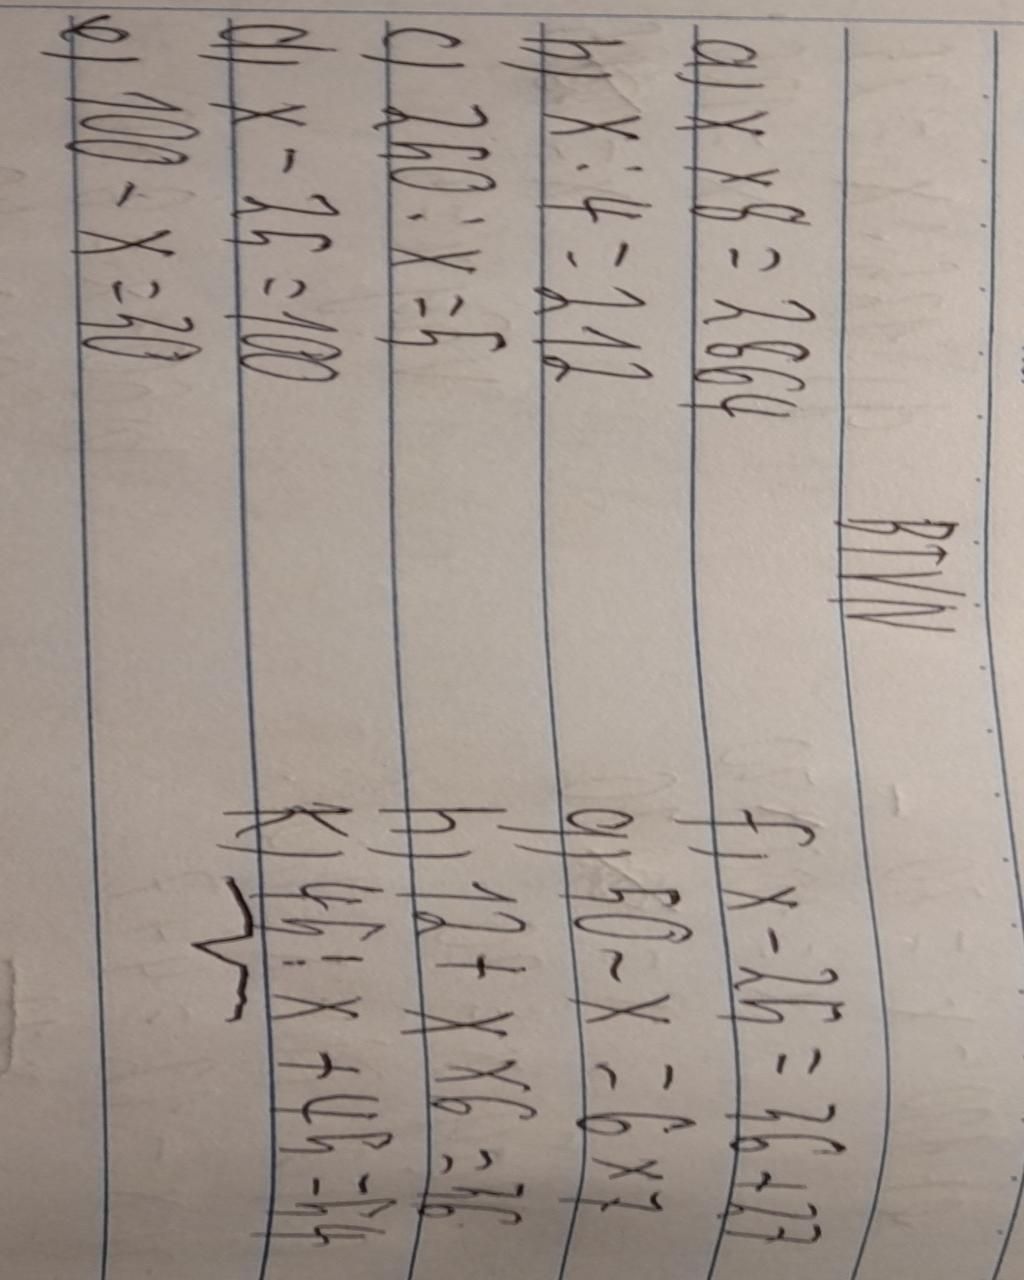 BTVN
a) x x 8 = 2864
b) x : 4 = 212
c) 250 : x = 5
d) x - 25 = 100
e) 100 - x = 30
f) x - 25 = 36 +
g) 50 - x = 6 x 7
h) 12 + x x 6 = 36
k) 45 : x + 45 = 54